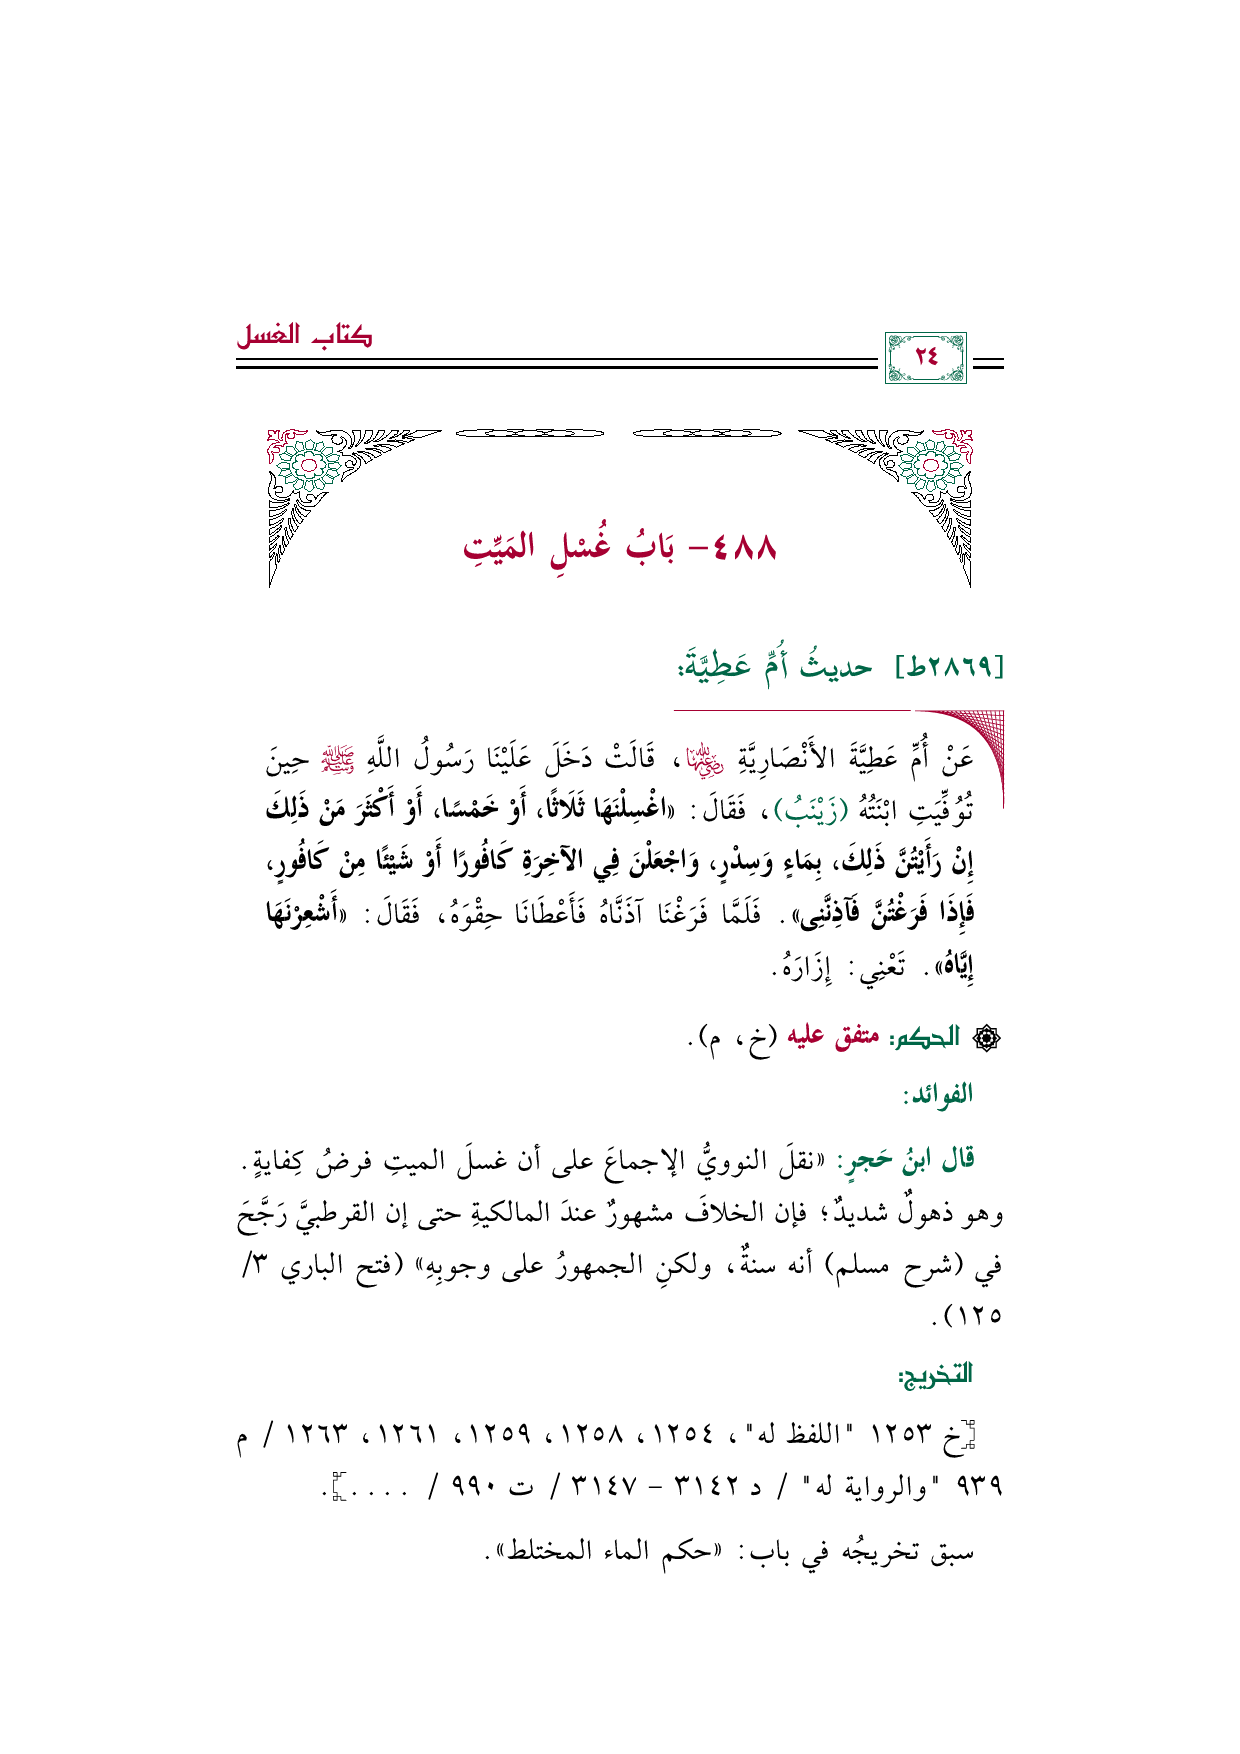 كتاب الغسل
٢٤
٤٨٨- بَابُ غُسْلِ المَيِّتِ
[٢٨٦٩ط] حديثُ أُمِّ عَطِيَّةَ:
عَنْ أُمِّ عَطِيَّةَ الأَنْصَارِيَّةِ رضي الله عنها، قَالَتْ دَخَلَ عَلَيْنَا رَسُولُ اللَّهِ ﷺ حِينَ
تُوُفِّيَتِ ابْنَتُهُ (زَيْنَبُ)، فَقَالَ: «اغْسِلْنَهَا ثَلَاثًا، أَوْ خَمْسًا، أَوْ أَكْثَرَ مَنْ ذَلِكَ
إِنْ رَأَيْتُنَّ ذَلِكَ، بِمَاءٍ وَسِدْرٍ، وَاجْعَلْنَ فِي الآخِرَةِ كَافُورًا أَوْ شَيْئًا مِنْ كَافُورٍ،
فَإِذَا فَرَغْتُنَّ فَآذِنَّنِى». فَلَمَّا فَرَغْنَا آذَنَّاهُ فَأَعْطَانَا حِقْوَهُ، فَقَالَ: «أَشْعِرْنَهَا
إِيَّاهُ». تَعْنِي: إِزَارَهُ.
الحكم: متفق عليه (خ، م).
الفوائد:
قال ابنُ حَجرٍ: «نقلَ النوويُّ الإجماعَ على أن غسلَ الميتِ فرضُ كِفايةٍ.
وهو ذهولٌ شديدٌ؛ فإن الخلافَ مشهورٌ عندَ المالكيةِ حتى إن القرطبيَّ رَجَّحَ
في (شرح مسلم) أنه سنةٌ، ولكنِ الجمهورُ على وجوبِهِ» (فتح الباري ٣/
١٢٥).
التخريج:
[خ ١٢٥٣ "اللفظ له"، ١٢٥٤، ١٢٥٨، ١٢٥٩، ١٢٦١، ١٢٦٣ / م
٩٣٩ "والرواية له" / د ٣١٤٢ - ٣١٤٧ / ت ٩٩٠ / ....].
سبق تخريجُه في باب: «حكم الماء المختلط».